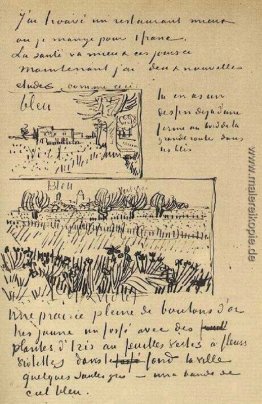 J'ai trouvé un restaurant mieux
où je mange pour 1 franc.
La santé va mieux ces jours ci
Maintenant j'ai deux nouvelles
études comme ceci
bleu
tu en as un
dessin déjà d'une
ferme au bord de la
grande route dans
les blés
Bleu
Une prairie pleine de boutons d'or
très jaune un fossé avec des
plantes d'iris aux feuilles vertes à fleurs
violettes dans le fond la ville
quelques saules gris – une bande de
ciel bleu.
www.malereikopie.de